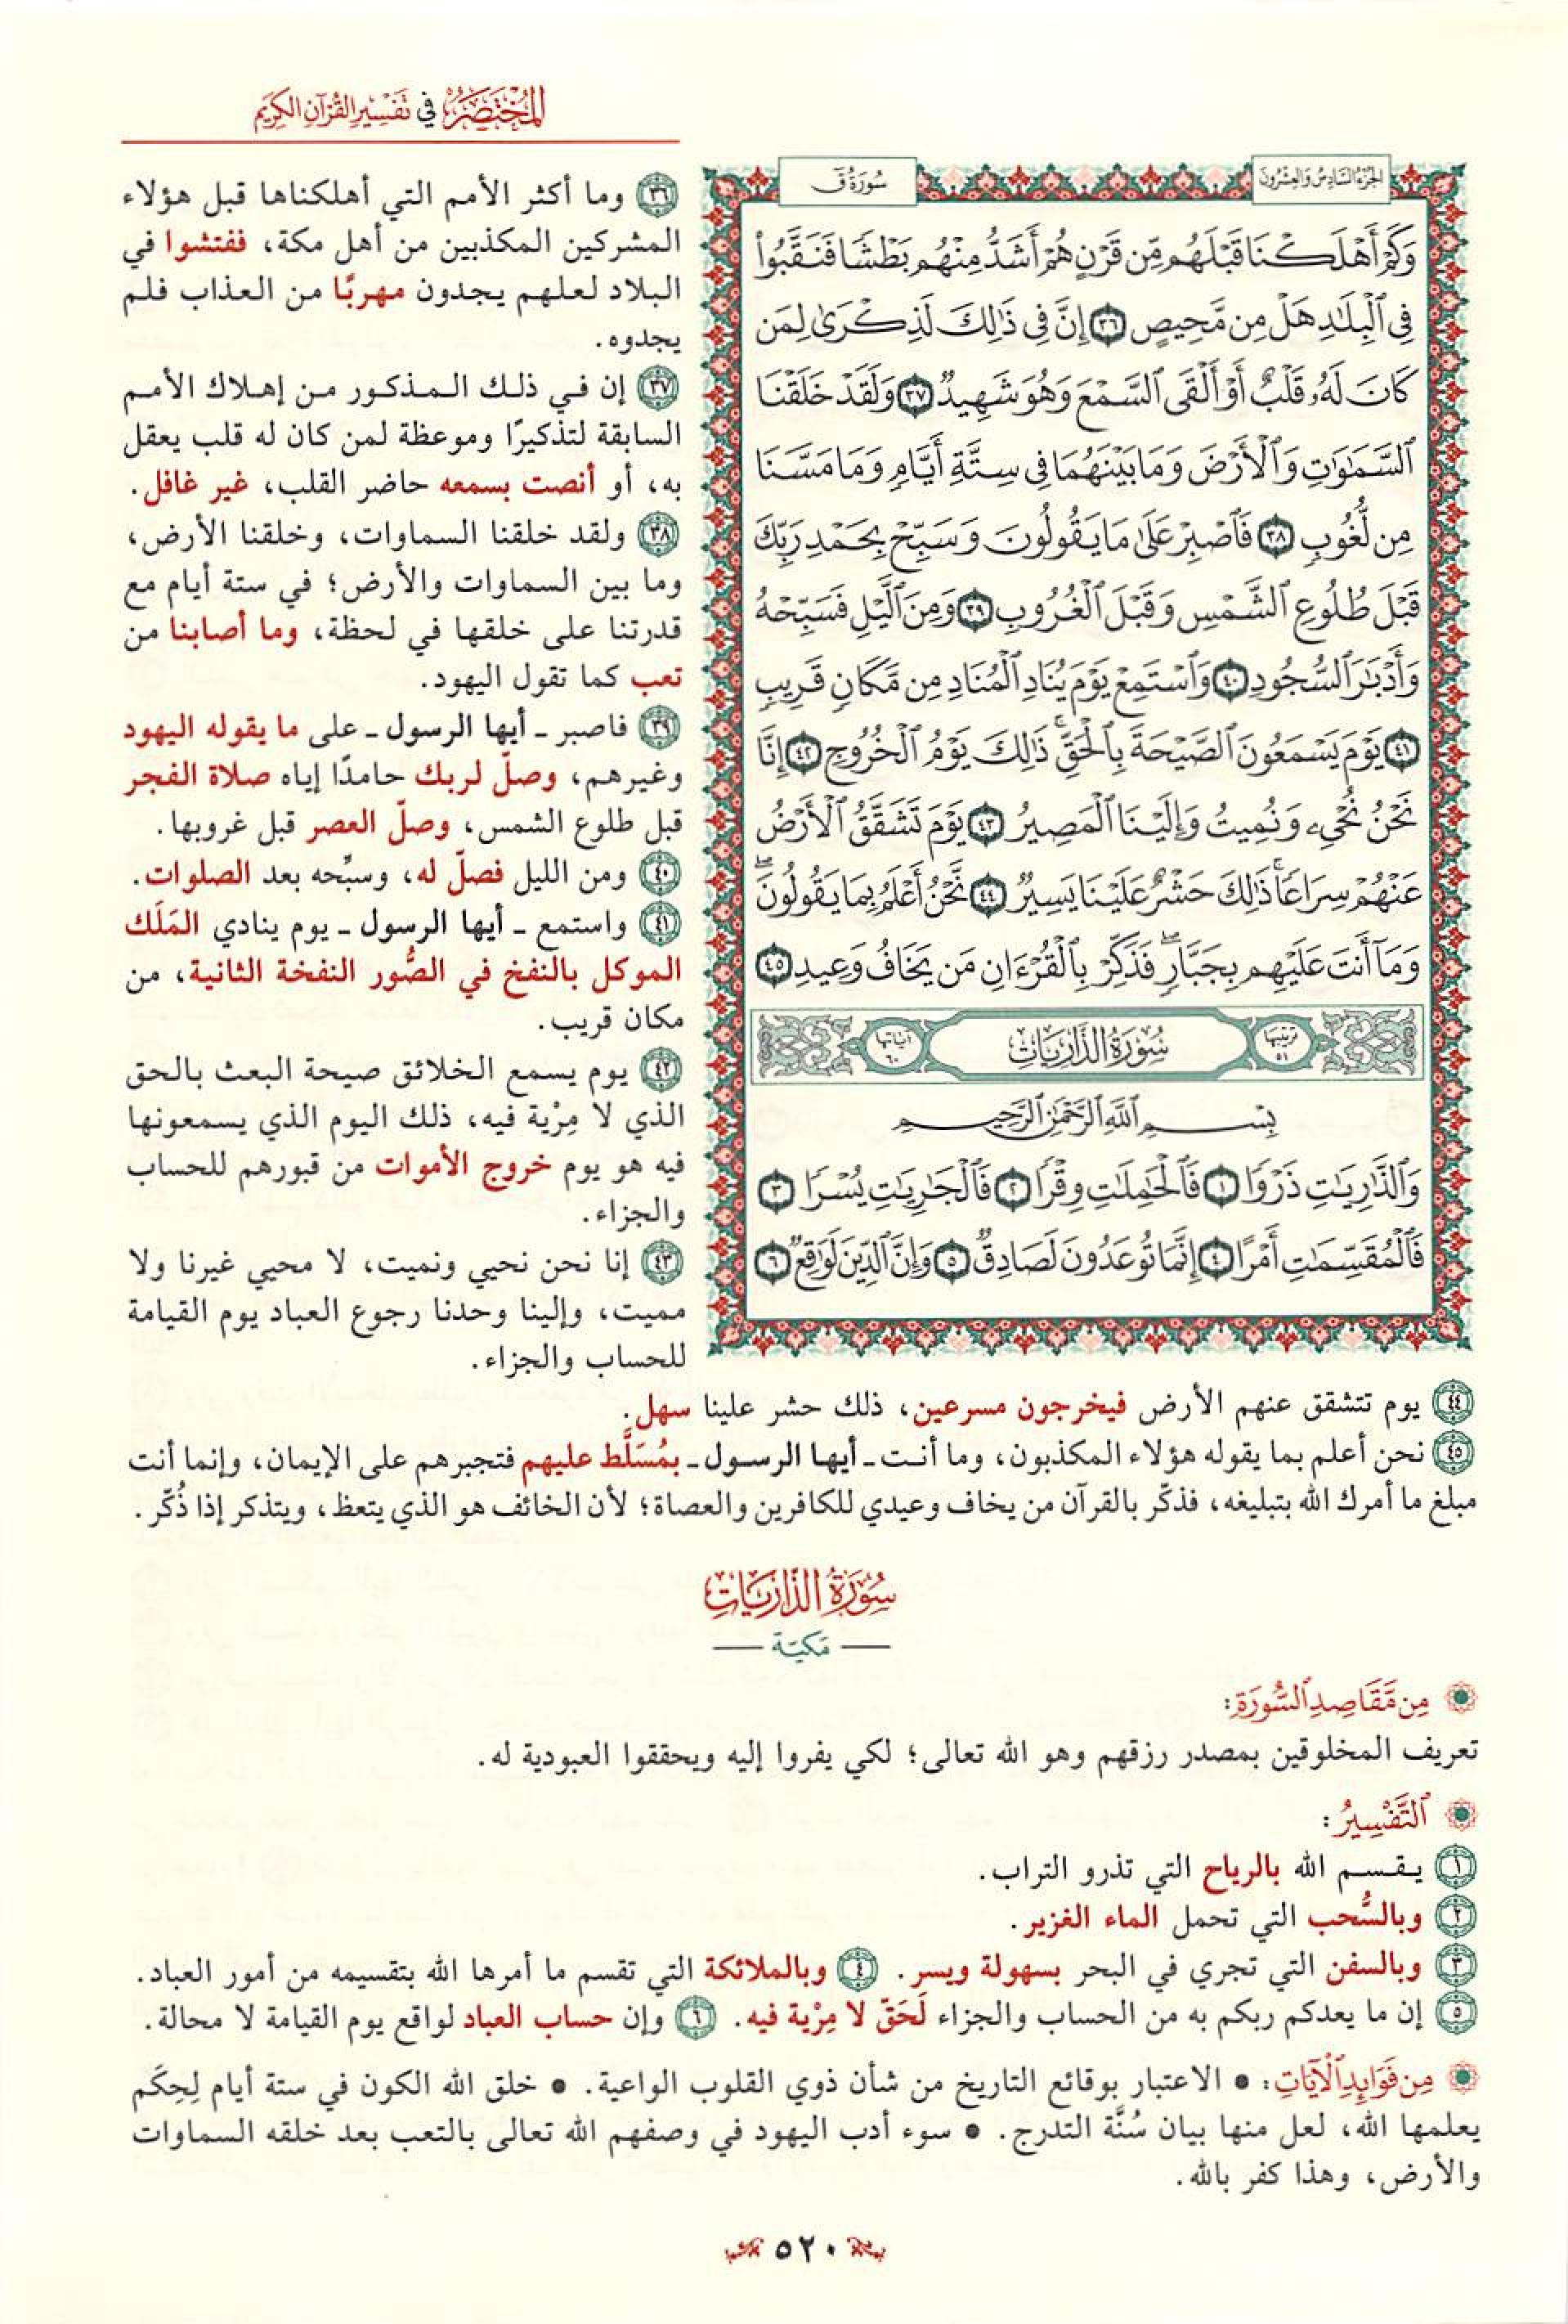 المختصر في تفسير القرآن الكريم
الجزء السادس والعشرون
سورة ق
وَكَمْ أَهْلَكْنَا قَبْلَهُم مِّن قَرْنٍ هُمْ أَشَدُّ مِنْهُم بَطْشًا فَنَقَّبُوا۟
فِى ٱلْبِلَـٰدِ هَلْ مِن مَّحِيصٍ ٣٦ إِنَّ فِى ذَٰلِكَ لَذِكْرَىٰ لِمَن
كَانَ لَهُۥ قَلْبٌ أَوْ أَلْقَى ٱلسَّمْعَ وَهُوَ شَهِيدٌ ٣٧ وَلَقَدْ خَلَقْنَا
ٱلسَّمَـٰوَٰتِ وَٱلْأَرْضَ وَمَا بَيْنَهُمَا فِى سِتَّةِ أَيَّامٍ وَمَا مَسَّنَا
مِن لُّغُوبٍ ٣٨ فَٱصْبِرْ عَلَىٰ مَا يَقُولُونَ وَسَبِّحْ بِحَمْدِ رَبِّكَ
قَبْلَ طُلُوعِ ٱلشَّمْسِ وَقَبْلَ ٱلْغُرُوبِ ٣٩ وَمِنَ ٱلَّيْلِ فَسَبِّحْهُ
وَأَدْبَـٰرَ ٱلسُّجُودِ ٤٠ وَٱسْتَمِعْ يَوْمَ يُنَادِ ٱلْمُنَادِ مِن مَّكَانٍ قَرِيبٍ
٤١ يَوْمَ يَسْمَعُونَ ٱلصَّيْحَةَ بِٱلْحَقِّ ۚ ذَٰلِكَ يَوْمُ ٱلْخُرُوجِ ٤٢ إِنَّا
نَحْنُ نُحْىِۦ وَنُمِيتُ وَإِلَيْنَا ٱلْمَصِيرُ ٤٣ يَوْمَ تَشَقَّقُ ٱلْأَرْضُ
عَنْهُمْ سِرَاعًا ۚ ذَٰلِكَ حَشْرٌ عَلَيْنَا يَسِيرٌ ٤٤ نَّحْنُ أَعْلَمُ بِمَا يَقُولُونَ ۖ
وَمَآ أَنتَ عَلَيْهِم بِجَبَّارٍ ۖ فَذَكِّرْ بِٱلْقُرْءَانِ مَن يَخَافُ وَعِيدِ ٤٥
ترتيبها ٥١ سورة الذاريات آياتها ٦٠
بِسْمِ ٱللَّهِ ٱلرَّحْمَـٰنِ ٱلرَّحِيمِ
وَٱلذَّٰرِيَـٰتِ ذَرْوًا ١ فَٱلْحَـٰمِلَـٰتِ وِقْرًا ٢ فَٱلْجَـٰرِيَـٰتِ يُسْرًا ٣
فَٱلْمُقَسِّمَـٰتِ أَمْرًا ٤ إِنَّمَا تُوعَدُونَ لَصَادِقٌ ٥ وَإِنَّ ٱلدِّينَ لَوَٰقِعٌ ٦
٣٦ وما أكثر الأمم التي أهلكناها قبل هؤلاء
المشركين المكذبين من أهل مكة، ففتشوا في
البلاد لعلهم يجدون مهربًا من العذاب فلم
يجدوه.
٣٧ إن في ذلك المذكور من إهلاك الأمم
السابقة لتذكيرًا وموعظة لمن كان له قلب يعقل
به، أو أنصت بسمعه حاضر القلب، غير غافل.
٣٨ ولقد خلقنا السماوات، وخلقنا الأرض،
وما بين السماوات والأرض؛ في ستة أيام مع
قدرتنا على خلقها في لحظة، وما أصابنا من
تعب كما تقول اليهود.
٣٩ فاصبر ـ أيها الرسول ـ على ما يقوله اليهود
وغيرهم، وصلّ لربك حامدًا إياه صلاة الفجر
قبل طلوع الشمس، وصلّ العصر قبل غروبها.
٤٠ ومن الليل فصلّ له، وسبِّحه بعد الصلوات.
٤١ واستمع ـ أيها الرسول ـ يوم ينادي المَلَك
الموكل بالنفخ في الصُّور النفخة الثانية، من
مكان قريب.
٤٢ يوم يسمع الخلائق صيحة البعث بالحق
الذي لا مِرْية فيه، ذلك اليوم الذي يسمعونها
فيه هو يوم خروج الأموات من قبورهم للحساب
والجزاء.
٤٣ إنا نحن نحيي ونميت، لا محيي غيرنا ولا
مميت، وإلينا وحدنا رجوع العباد يوم القيامة
للحساب والجزاء.
٤٤ يوم تتشقق عنهم الأرض فيخرجون مسرعين، ذلك حشر علينا سهل.
٤٥ نحن أعلم بما يقوله هؤلاء المكذبون، وما أنت ـ أيها الرسول ـ بمُسَلَّط عليهم فتجبرهم على الإيمان، وإنما أنت
مبلغ ما أمرك الله بتبليغه، فذكّر بالقرآن من يخاف وعيدي للكافرين والعصاة؛ لأن الخائف هو الذي يتعظ، ويتذكر إذا ذُكّر.
سورة الذاريات
مكية
من مقاصد السورة:
تعريف المخلوقين بمصدر رزقهم وهو الله تعالى؛ لكي يفروا إليه ويحققوا العبودية له.
التفسير:
١ يقسم الله بالرياح التي تذرو التراب.
٢ وبالسُّحب التي تحمل الماء الغزير.
٣ وبالسفن التي تجري في البحر بسهولة ويسر. ٤ وبالملائكة التي تقسم ما أمرها الله بتقسيمه من أمور العباد.
٥ إن ما يعدكم ربكم به من الحساب والجزاء لَحَقّ لا مِرْية فيه. ٦ وإن حساب العباد لواقع يوم القيامة لا محالة.
من فوائد الآيات: • الاعتبار بوقائع التاريخ من شأن ذوي القلوب الواعية. • خلق الله الكون في ستة أيام لِحِكَم
يعلمها الله، لعل منها بيان سُنَّة التدرج. • سوء أدب اليهود في وصفهم الله تعالى بالتعب بعد خلقه السماوات
والأرض، وهذا كفر بالله.
٥٢٠